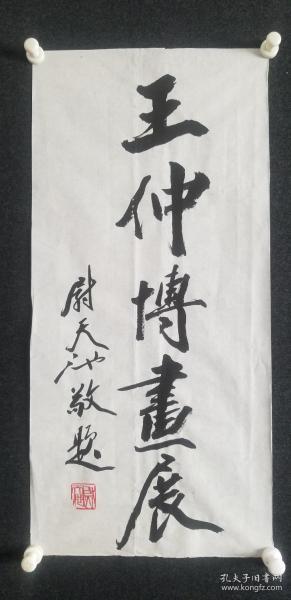 王仲博畫展
尉天池敬題
孔夫子旧书网
www.kongfz.com